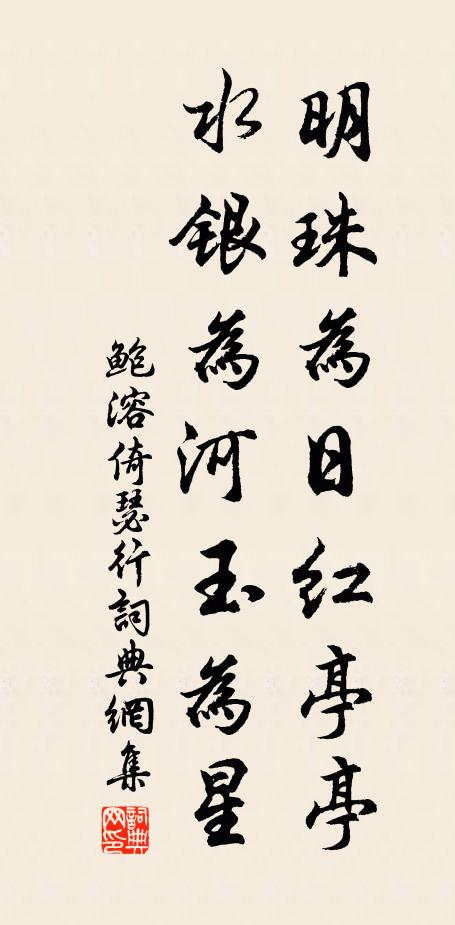 明珠為日紅亭亭
水銀為河玉為星
鮑溶倚瑟行詞典網集
詞典網印